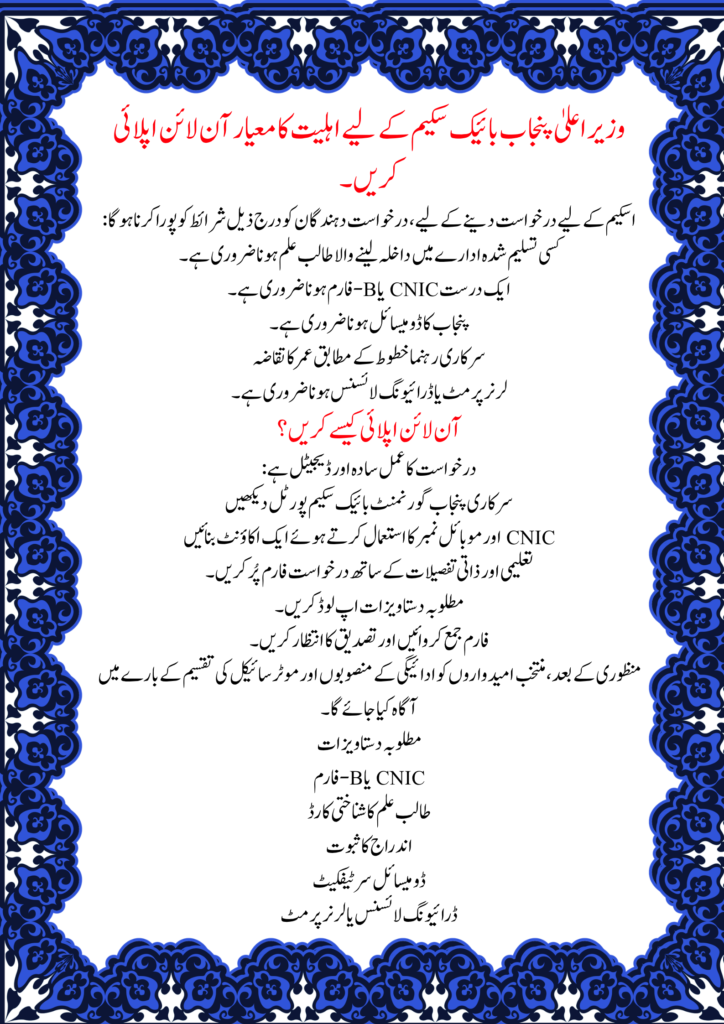 وزیر اعلیٰ پنجاب بائیک سکیم کے لیے اہلیت کا معیار آن لائن اپلائی
کریں۔
اسکیم کے لیے درخواست دینے کے لیے، درخواست دہندگان کو درج ذیل شرائط کو پورا کرنا ہو گا:
کسی تسلیم شدہ ادارے میں داخلہ لینے والا طالب علم ہونا ضروری ہے۔
ایک درست CNIC یا B-فارم ہونا ضروری ہے۔
پنجاب کا ڈومیسائل ہونا ضروری ہے۔
سرکاری رہنما خطوط کے مطابق عمر کا تقاضہ
لرنر پرمٹ یا ڈرائیونگ لائسنس ہونا ضروری ہے۔
آن لائن اپلائی کیسے کریں؟
درخواست کا عمل سادہ اور ڈیجیٹل ہے:
سرکاری پنجاب گورنمنٹ بائیک سکیم پورٹل دیکھیں
CNIC اور موبائل نمبر کا استعمال کرتے ہوئے ایک اکاؤنٹ بنائیں
تعلیمی اور ذاتی تفصیلات کے ساتھ درخواست فارم پُر کریں۔
مطلوبہ دستاویزات اپ لوڈ کریں۔
فارم جمع کروائیں اور تصدیق کا انتظار کریں۔
منظوری کے بعد، منتخب امیدواروں کو ادائیگی کے منصوبوں اور موٹر سائیکل کی تقسیم کے بارے میں
آگاہ کیا جائے گا۔
مطلوبہ دستاویزات
CNIC یا B-فارم
طالب علم کا شناختی کارڈ
اندراج کا ثبوت
ڈومیسائل سرٹیفکیٹ
ڈرائیونگ لائسنس یا لرنر پرمٹ